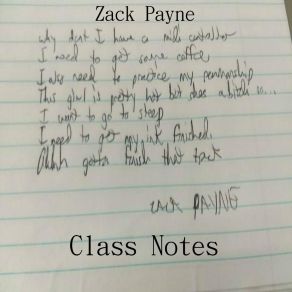 Zack Payne
why dont I have a milk
I need to get some coffee
I also need to practice my penmanship
This girl is pretty hot but does a bitch
I want to go to sleep
I need to get my ink finished.
Ohhh gotta finish that tack
ZACK PAYNE
Class Notes